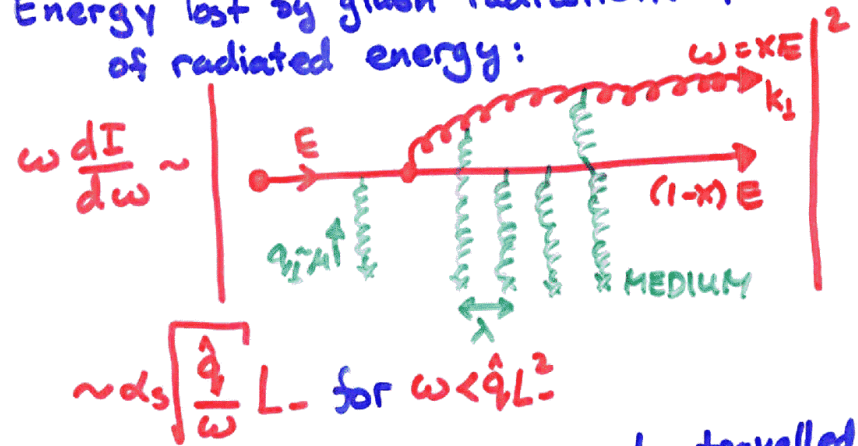 Energy lost by gluon radiation:
of radiated energy:
ω = xE
k⊥
E
ω dI/dω ~ | |²
(1-x) E
q⊥~μ
MEDIUM
λ
~ αs √(q̂/ω) L₋ for ω < q̂L₋²
travelled